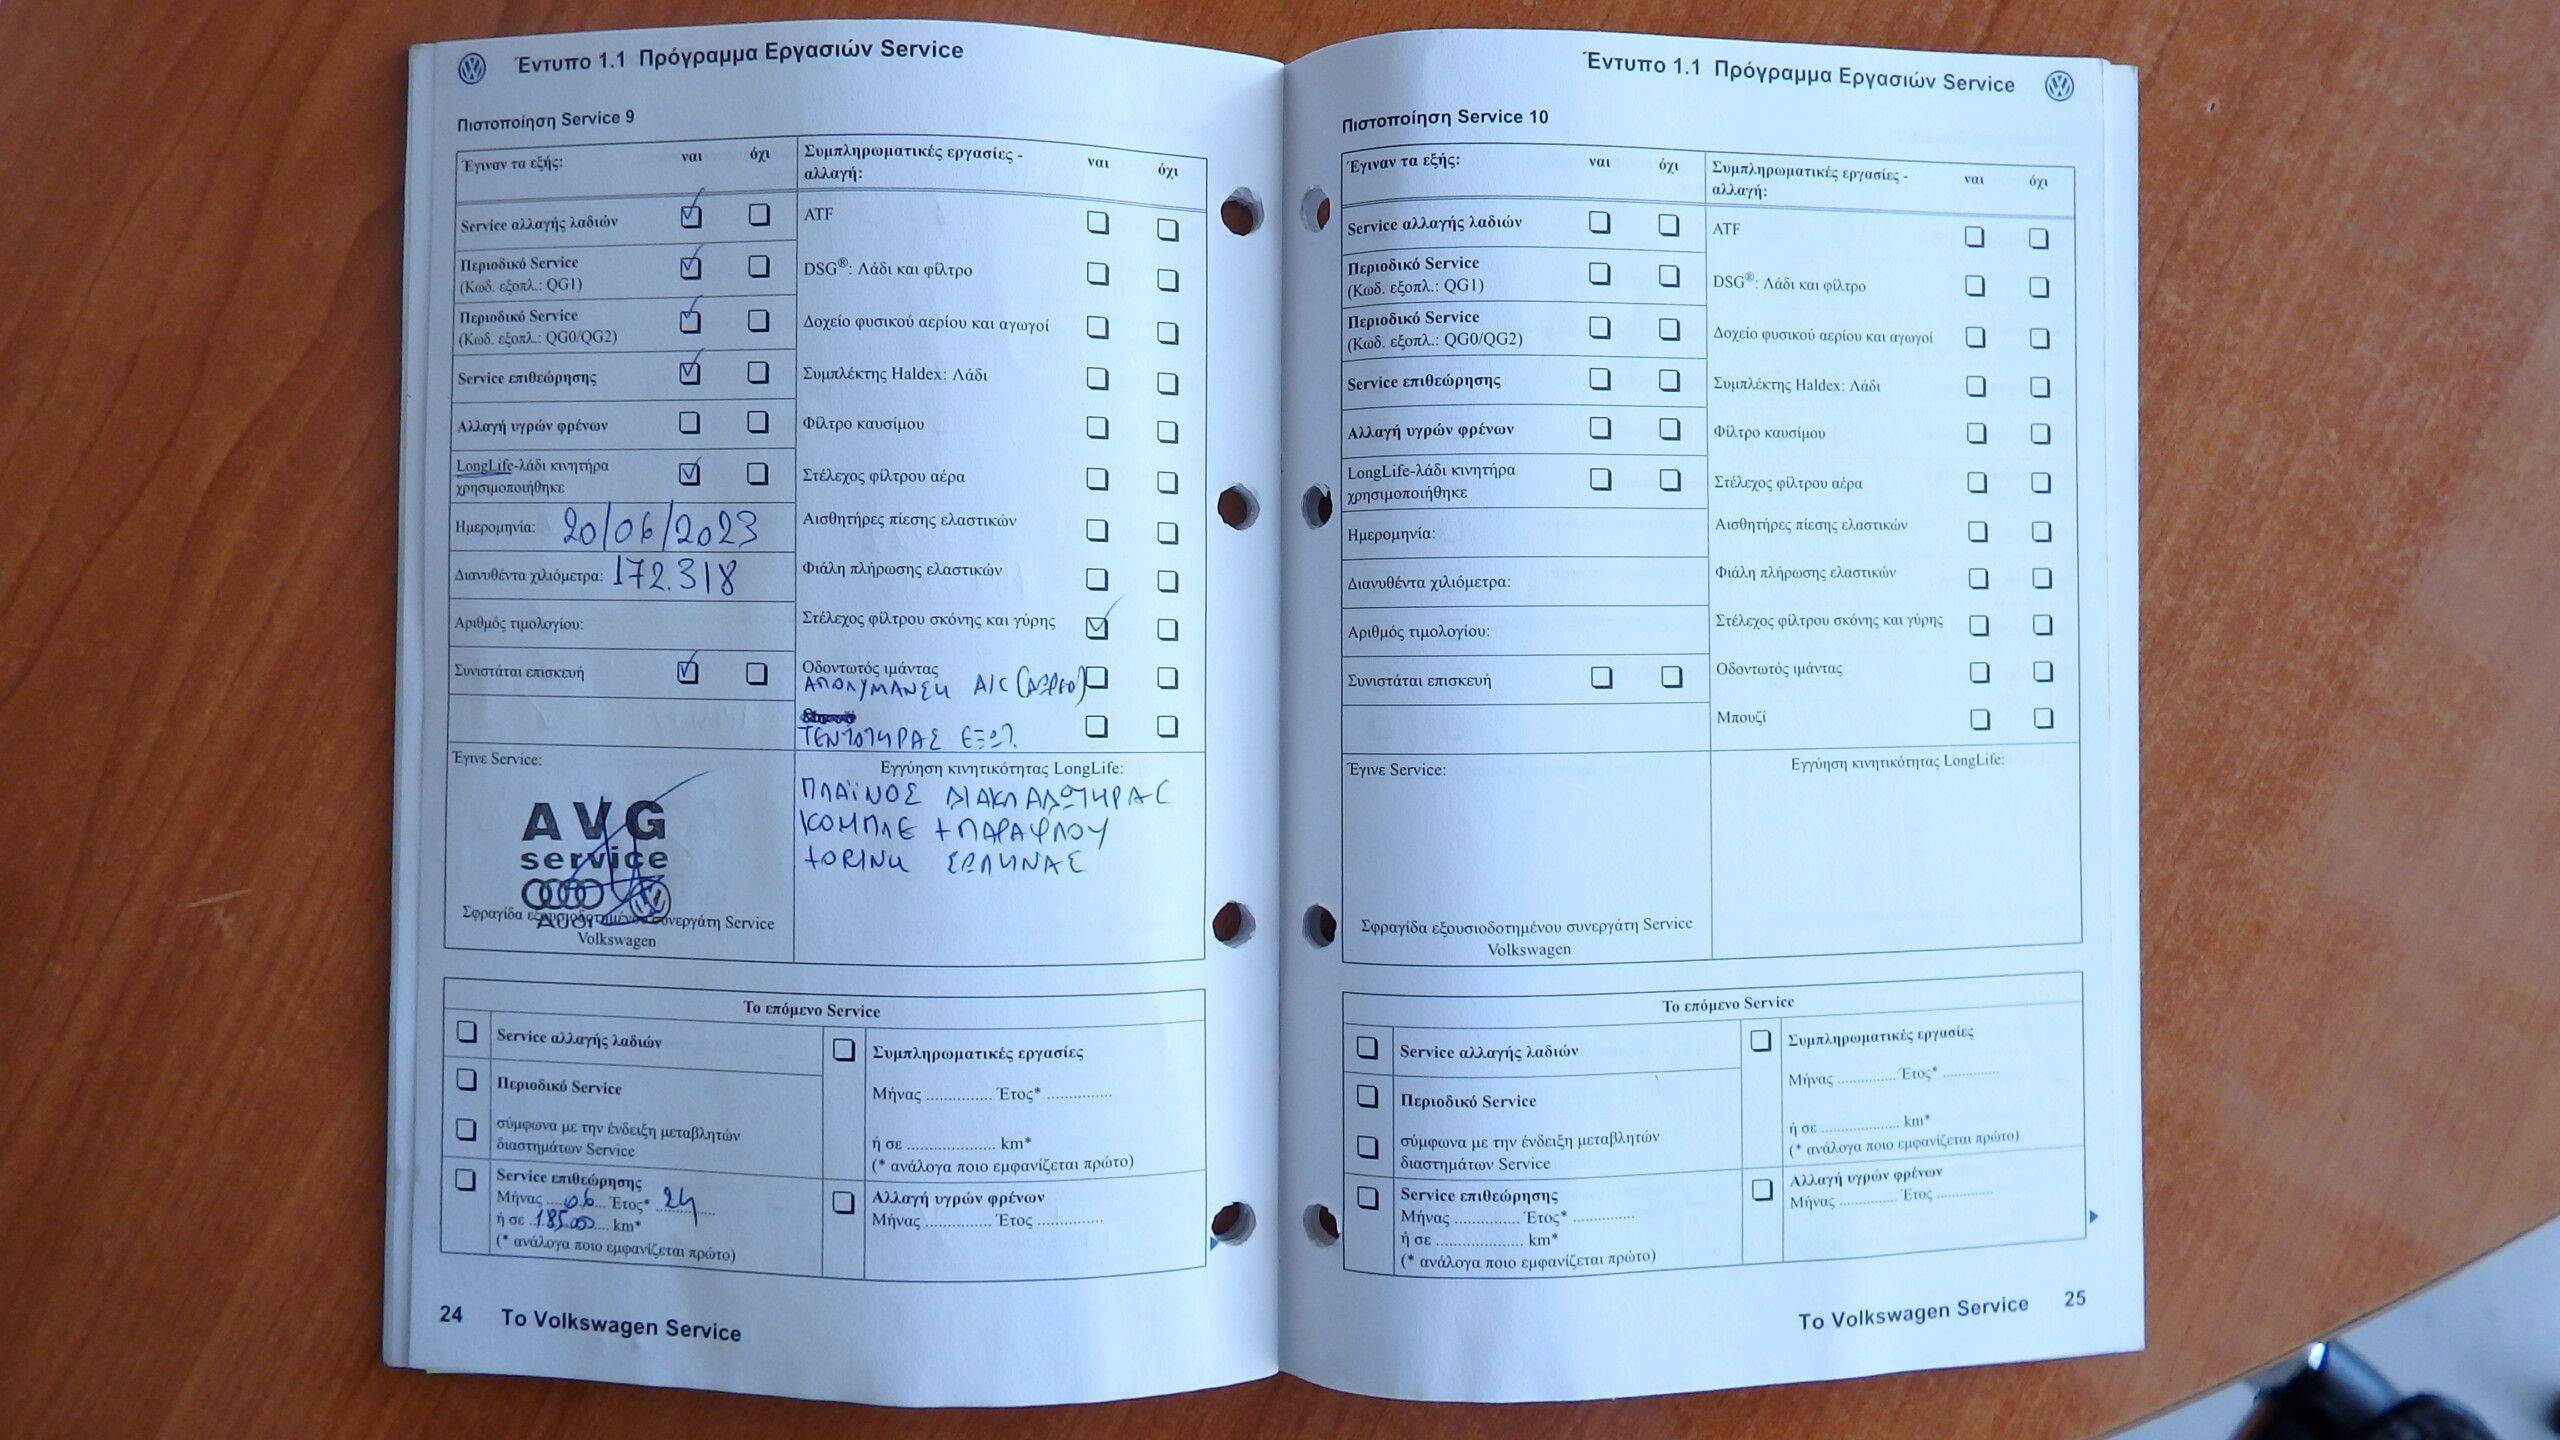 Έντυπο 1.1 Πρόγραμμα Εργασιών Service
Πιστοποίηση Service 9
Έγιναν τα εξής: ναι όχι
Service αλλαγής λαδιών
Περιοδικό Service
(Κωδ. εξοπλ.: QG1)
Περιοδικό Service
(Κωδ. εξοπλ.: QG0/QG2)
Service επιθεώρησης
Αλλαγή υγρών φρένων
LongLife-λάδι κινητήρα
χρησιμοποιήθηκε
Ημερομηνία: 20/06/2023
Διανυθέντα χιλιόμετρα: 172.318
Αριθμός τιμολογίου:
Συνιστάται επισκευή
Συμπληρωματικές εργασίες - ναι όχι
αλλαγή:
ATF
DSG®: Λάδι και φίλτρο
Δοχείο φυσικού αερίου και αγωγοί
Συμπλέκτης Haldex: Λάδι
Φίλτρο καυσίμου
Στέλεχος φίλτρου αέρα
Αισθητήρες πίεσης ελαστικών
Φιάλη πλήρωσης ελαστικών
Στέλεχος φίλτρου σκόνης και γύρης
Οδοντωτός ιμάντας
ΑΠΟΛΥΜΑΝΣΗ A/C
ΤΕΝΤΩΤΗΡΑΣ ΕΞΩΤ.
Έγινε Service:
AVG
service
Audi
Σφραγίδα εξουσιοδοτημένου συνεργάτη Service
Volkswagen
Εγγύηση κινητικότητας LongLife:
ΠΛΑΪΝΟΣ ΔΙΑΚΛΑΔΩΤΗΡΑΣ
ΚΟΜΠΛΕ + ΠΑΡΑΦΛΟΥ
+ORING ΣΩΛΗΝΑΣ
Το επόμενο Service
Service αλλαγής λαδιών
Περιοδικό Service
σύμφωνα με την ένδειξη μεταβλητών
διαστημάτων Service
Service επιθεώρησης
Μήνας 06 Έτος* 24
ή σε 185.000 km*
(* ανάλογα ποιο εμφανίζεται πρώτο)
Συμπληρωματικές εργασίες
Μήνας ............... Έτος* ...............
ή σε .................... km*
(* ανάλογα ποιο εμφανίζεται πρώτο)
Αλλαγή υγρών φρένων
Μήνας ............... Έτος ...............
24 Το Volkswagen Service
Έντυπο 1.1 Πρόγραμμα Εργασιών Service
Πιστοποίηση Service 10
Έγιναν τα εξής: ναι όχι
Service αλλαγής λαδιών
Περιοδικό Service
(Κωδ. εξοπλ.: QG1)
Περιοδικό Service
(Κωδ. εξοπλ.: QG0/QG2)
Service επιθεώρησης
Αλλαγή υγρών φρένων
LongLife-λάδι κινητήρα
χρησιμοποιήθηκε
Ημερομηνία:
Διανυθέντα χιλιόμετρα:
Αριθμός τιμολογίου:
Συνιστάται επισκευή
Συμπληρωματικές εργασίες - ναι όχι
αλλαγή:
ATF
DSG®: Λάδι και φίλτρο
Δοχείο φυσικού αερίου και αγωγοί
Συμπλέκτης Haldex: Λάδι
Φίλτρο καυσίμου
Στέλεχος φίλτρου αέρα
Αισθητήρες πίεσης ελαστικών
Φιάλη πλήρωσης ελαστικών
Στέλεχος φίλτρου σκόνης και γύρης
Οδοντωτός ιμάντας
Μπουζί
Έγινε Service:
Σφραγίδα εξουσιοδοτημένου συνεργάτη Service
Volkswagen
Εγγύηση κινητικότητας LongLife:
Το επόμενο Service
Service αλλαγής λαδιών
Περιοδικό Service
σύμφωνα με την ένδειξη μεταβλητών
διαστημάτων Service
Service επιθεώρησης
Μήνας ............... Έτος* ...............
ή σε .................... km*
(* ανάλογα ποιο εμφανίζεται πρώτο)
Συμπληρωματικές εργασίες
Μήνας ............... Έτος* ...............
ή σε .................... km*
(* ανάλογα ποιο εμφανίζεται πρώτο)
Αλλαγή υγρών φρένων
Μήνας ............... Έτος ...............
Το Volkswagen Service 25